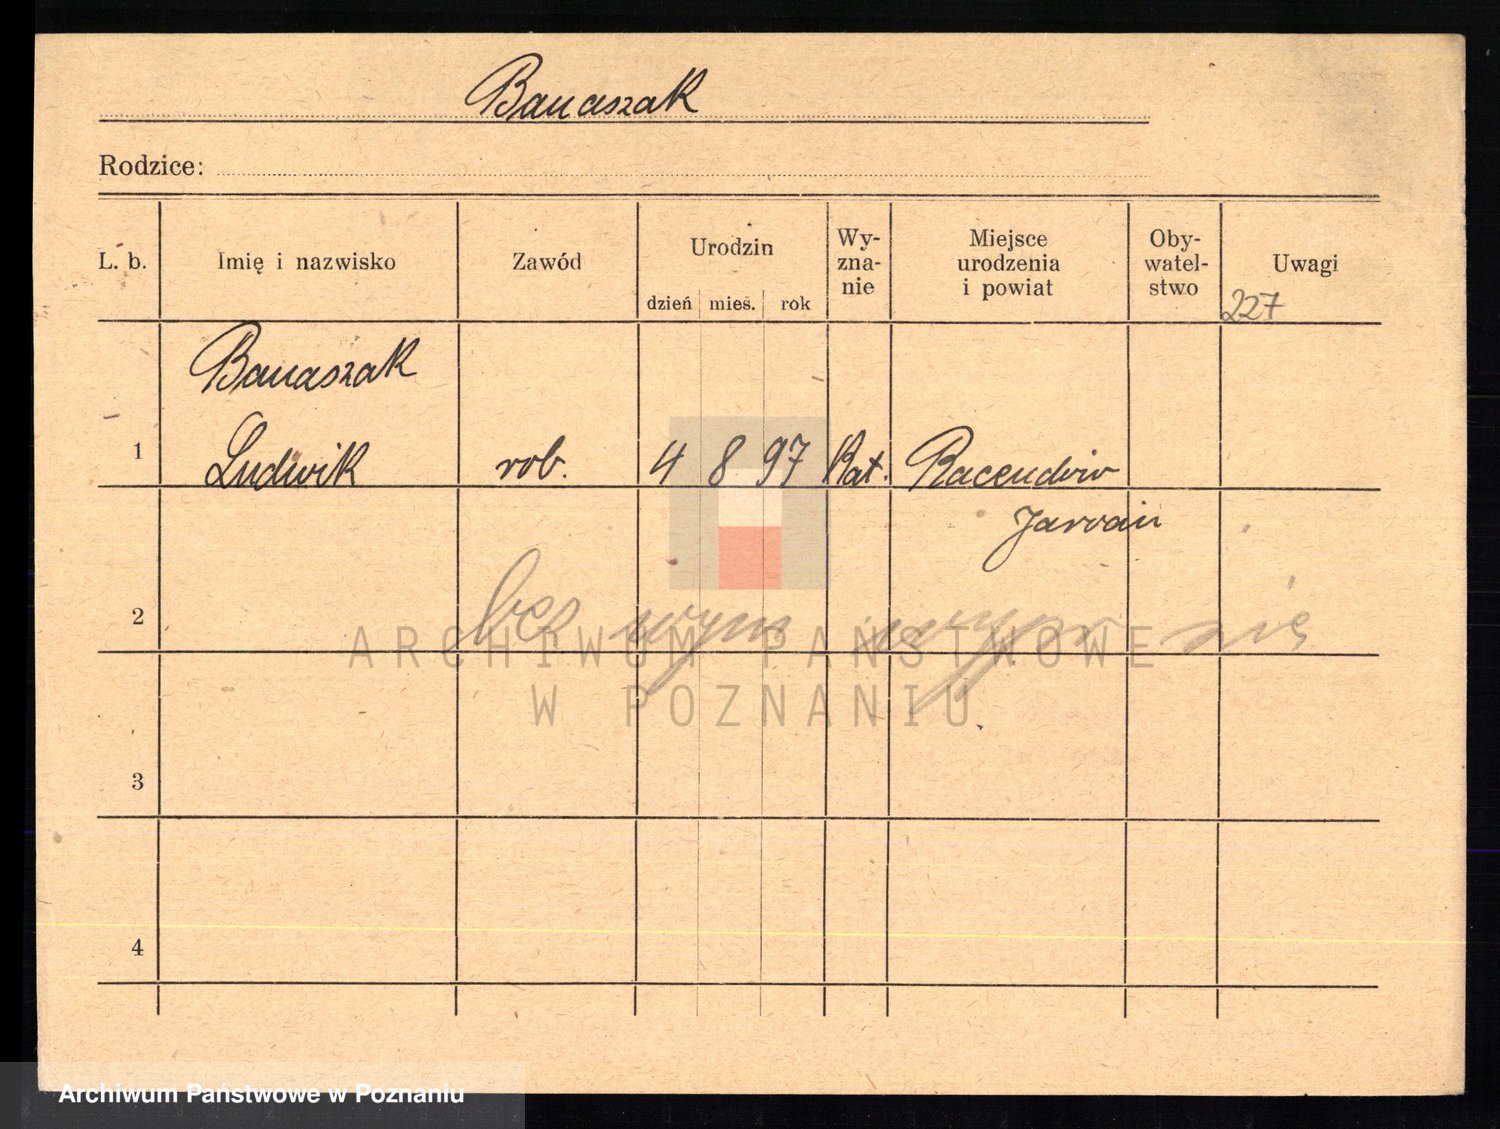 Banaszak
Rodzice:
L. b. Imię i nazwisko Zawód Urodzin dzień mieś. rok Wy-zna-nie Miejsce urodzenia i powiat Oby-watel-stwo Uwagi
227
Banaszak
1 Ludwik rob. 4 8 97 Kat. Racendów
Jarocin
2 bez wym wypr się
3
4
ARCHIWUM PAŃSTWOWE
W POZNANIU
Archiwum Państwowe w Poznaniu